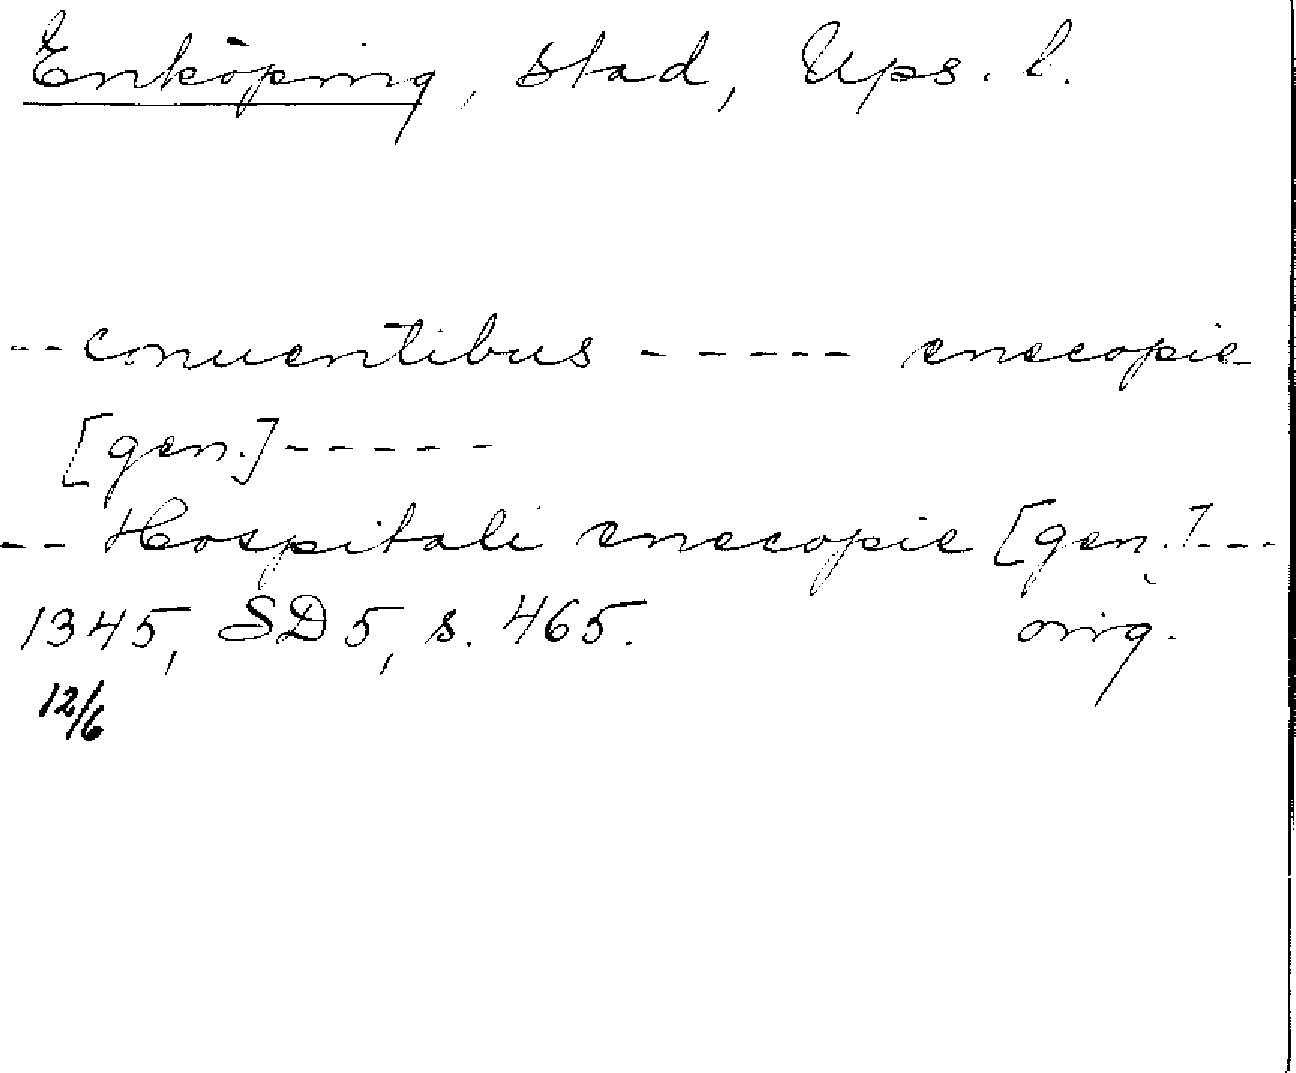 Enköping, stad, Ups. l.
-- conuentibus ----- enecopie
[gen.] -----
-- Hospitali enecopie [gen.] ---
1345, SD 5, s. 465. orig.
12/6